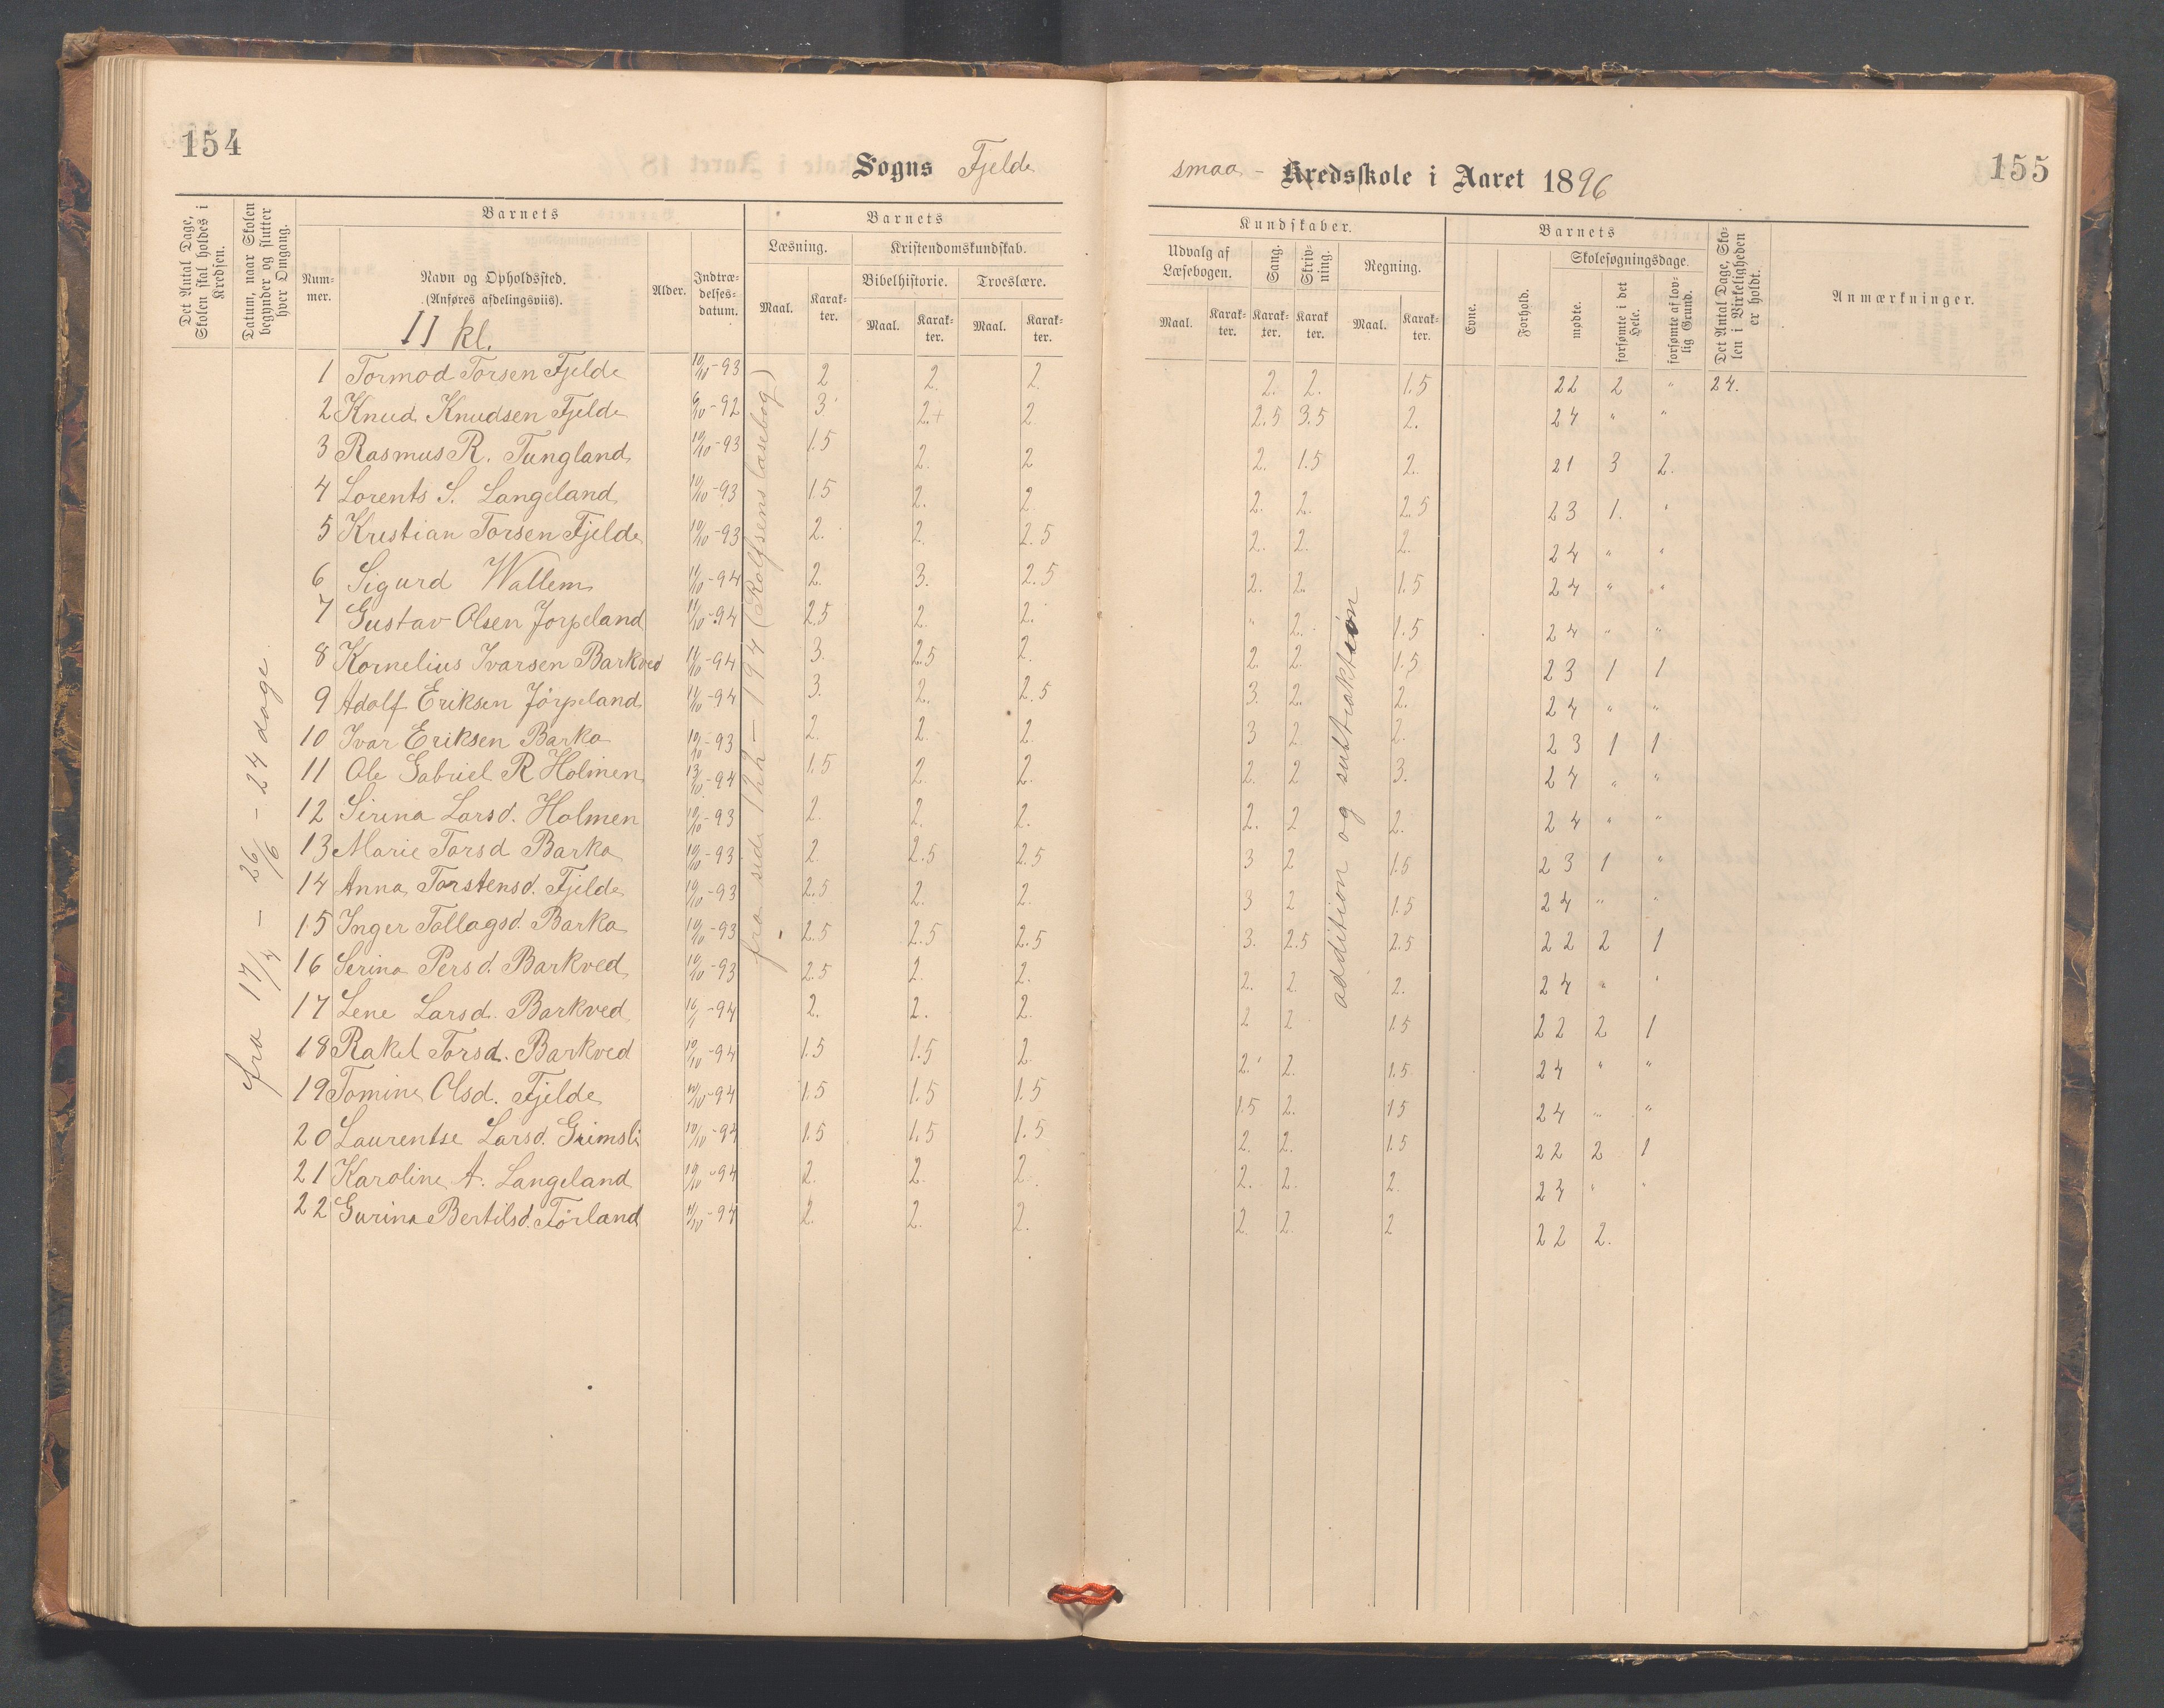 154
Sogns Fjelde
smaa - Kredsskole i Aaret 1896
155
Det Antal Dage, Skolen skal holdes i Kredsen.
Datum, naar Skolen begynder og slutter hver Omgang.
Barnets
Nummer.
Navn og Opholdssted.
(Anføres afdelingsviis).
II kl.
Alder.
Indtrædelses-datum.
Barnets
Læsning.
Maal.
Karakter.
Kristendomskundskab.
Bibelhistorie.
Maal.
Karakter.
Troeslære.
Maal.
Karakter.
Kundskaber.
Udvalg af Læsebogen.
Maal.
Karakter.
Sang.
Karakter.
Skrivning.
Karakter.
Regning.
Maal.
Karakter.
Barnets
Evne.
Forhold.
Skolesøgningsdage.
mødte.
forsømte i det Hele.
forsømte af lovlig Grund.
Det Antal Dage, Skolen i Virkeligheden er holdt.
Anmærkninger.
fra 17/4 - 26/6 - 24 dage.
fra side 122 - 194 (Rolfsens læsebog)
addition og subtraktion
1 Tormod Torsen Fjelde 10/10-93 2 2. 2. 2. 2. 1.5 22 2 " 24.
2 Knud Knudsen Fjelde 9/10-92 3 2+ 2 2.5 3.5 2. 24 " "
3 Rasmus R. Tungland 10/10-93 1.5 2. 2 2. 1.5 2. 21 3 2.
4 Lorents S. Langeland 10/10-93 1.5 2. 2 2. 2. 2.5 23 1. "
5 Kristian Torsen Fjelde 10/10-93 2. 2. 2.5 2. 2. 2. 24 " "
6 Sigurd Wallem 11/10-94 2. 3. 2.5 2. 2. 1.5 24 " "
7 Gustav Olsen Jorpeland 11/10-94 2.5 2. 2. " 2. 1.5 24 " "
8 Kornelius Ivarsen Barkved 11/10-94 3. 2.5 2. 2. 2. 1.5 23 1 1
9 Adolf Eriksen Jørpeland 11/10-94 3. 2. 2.5 3. 2. 2. 24 " "
10 Ivar Eriksen Barka 10/10-93 2. 2. 2. 3 2 2. 23 1 1
11 Ole Gabriel R Holmen 13/10-94 1.5 2. 2. 2. 2 3. 24 " "
12 Sirina Larsd. Holmen 10/10-93 2. 2. 2. 2. 2 2. 24 " "
13 Marie Torsd Barka 10/10-93 2. 2.5 2.5 3 2 1.5 23 1 "
14 Anna Torstensd. Fjelde 10/10-93 2.5 2. 2. 3 2 1.5 24 " "
15 Inger Tollagsd. Barka 10/10-93 2.5 2.5 2.5 3. 2.5 2.5 22 2 1
16 Serina Persd. Barkved 10/10-93 2.5 2. 2. 2. 2. 2. 24 " "
17 Lene Larsd. Barkved -94 2. 2. 2. 2 2 1.5 22 2 1
18 Rakel Torsd. Barkved 10/10-94 1.5 1.5 2. 2. 2. 1.5 24 " "
19 Tomine Olsd. Fjelde 10/10-94 1.5 1.5 1.5 1.5 2. 15 24 " "
20 Laurentse Larsd. Grimsli 10/10-94 1.5 1.5 1.5 2. 2. 1.5 22 2 1
21 Karoline A. Langeland 10/10-94 2. 2. 2. 2. 2. 2. 24 " "
22 Gurina Bertilsd. Førland 11/10-94 2. 2. 2. 2. 2. 2 22 2.